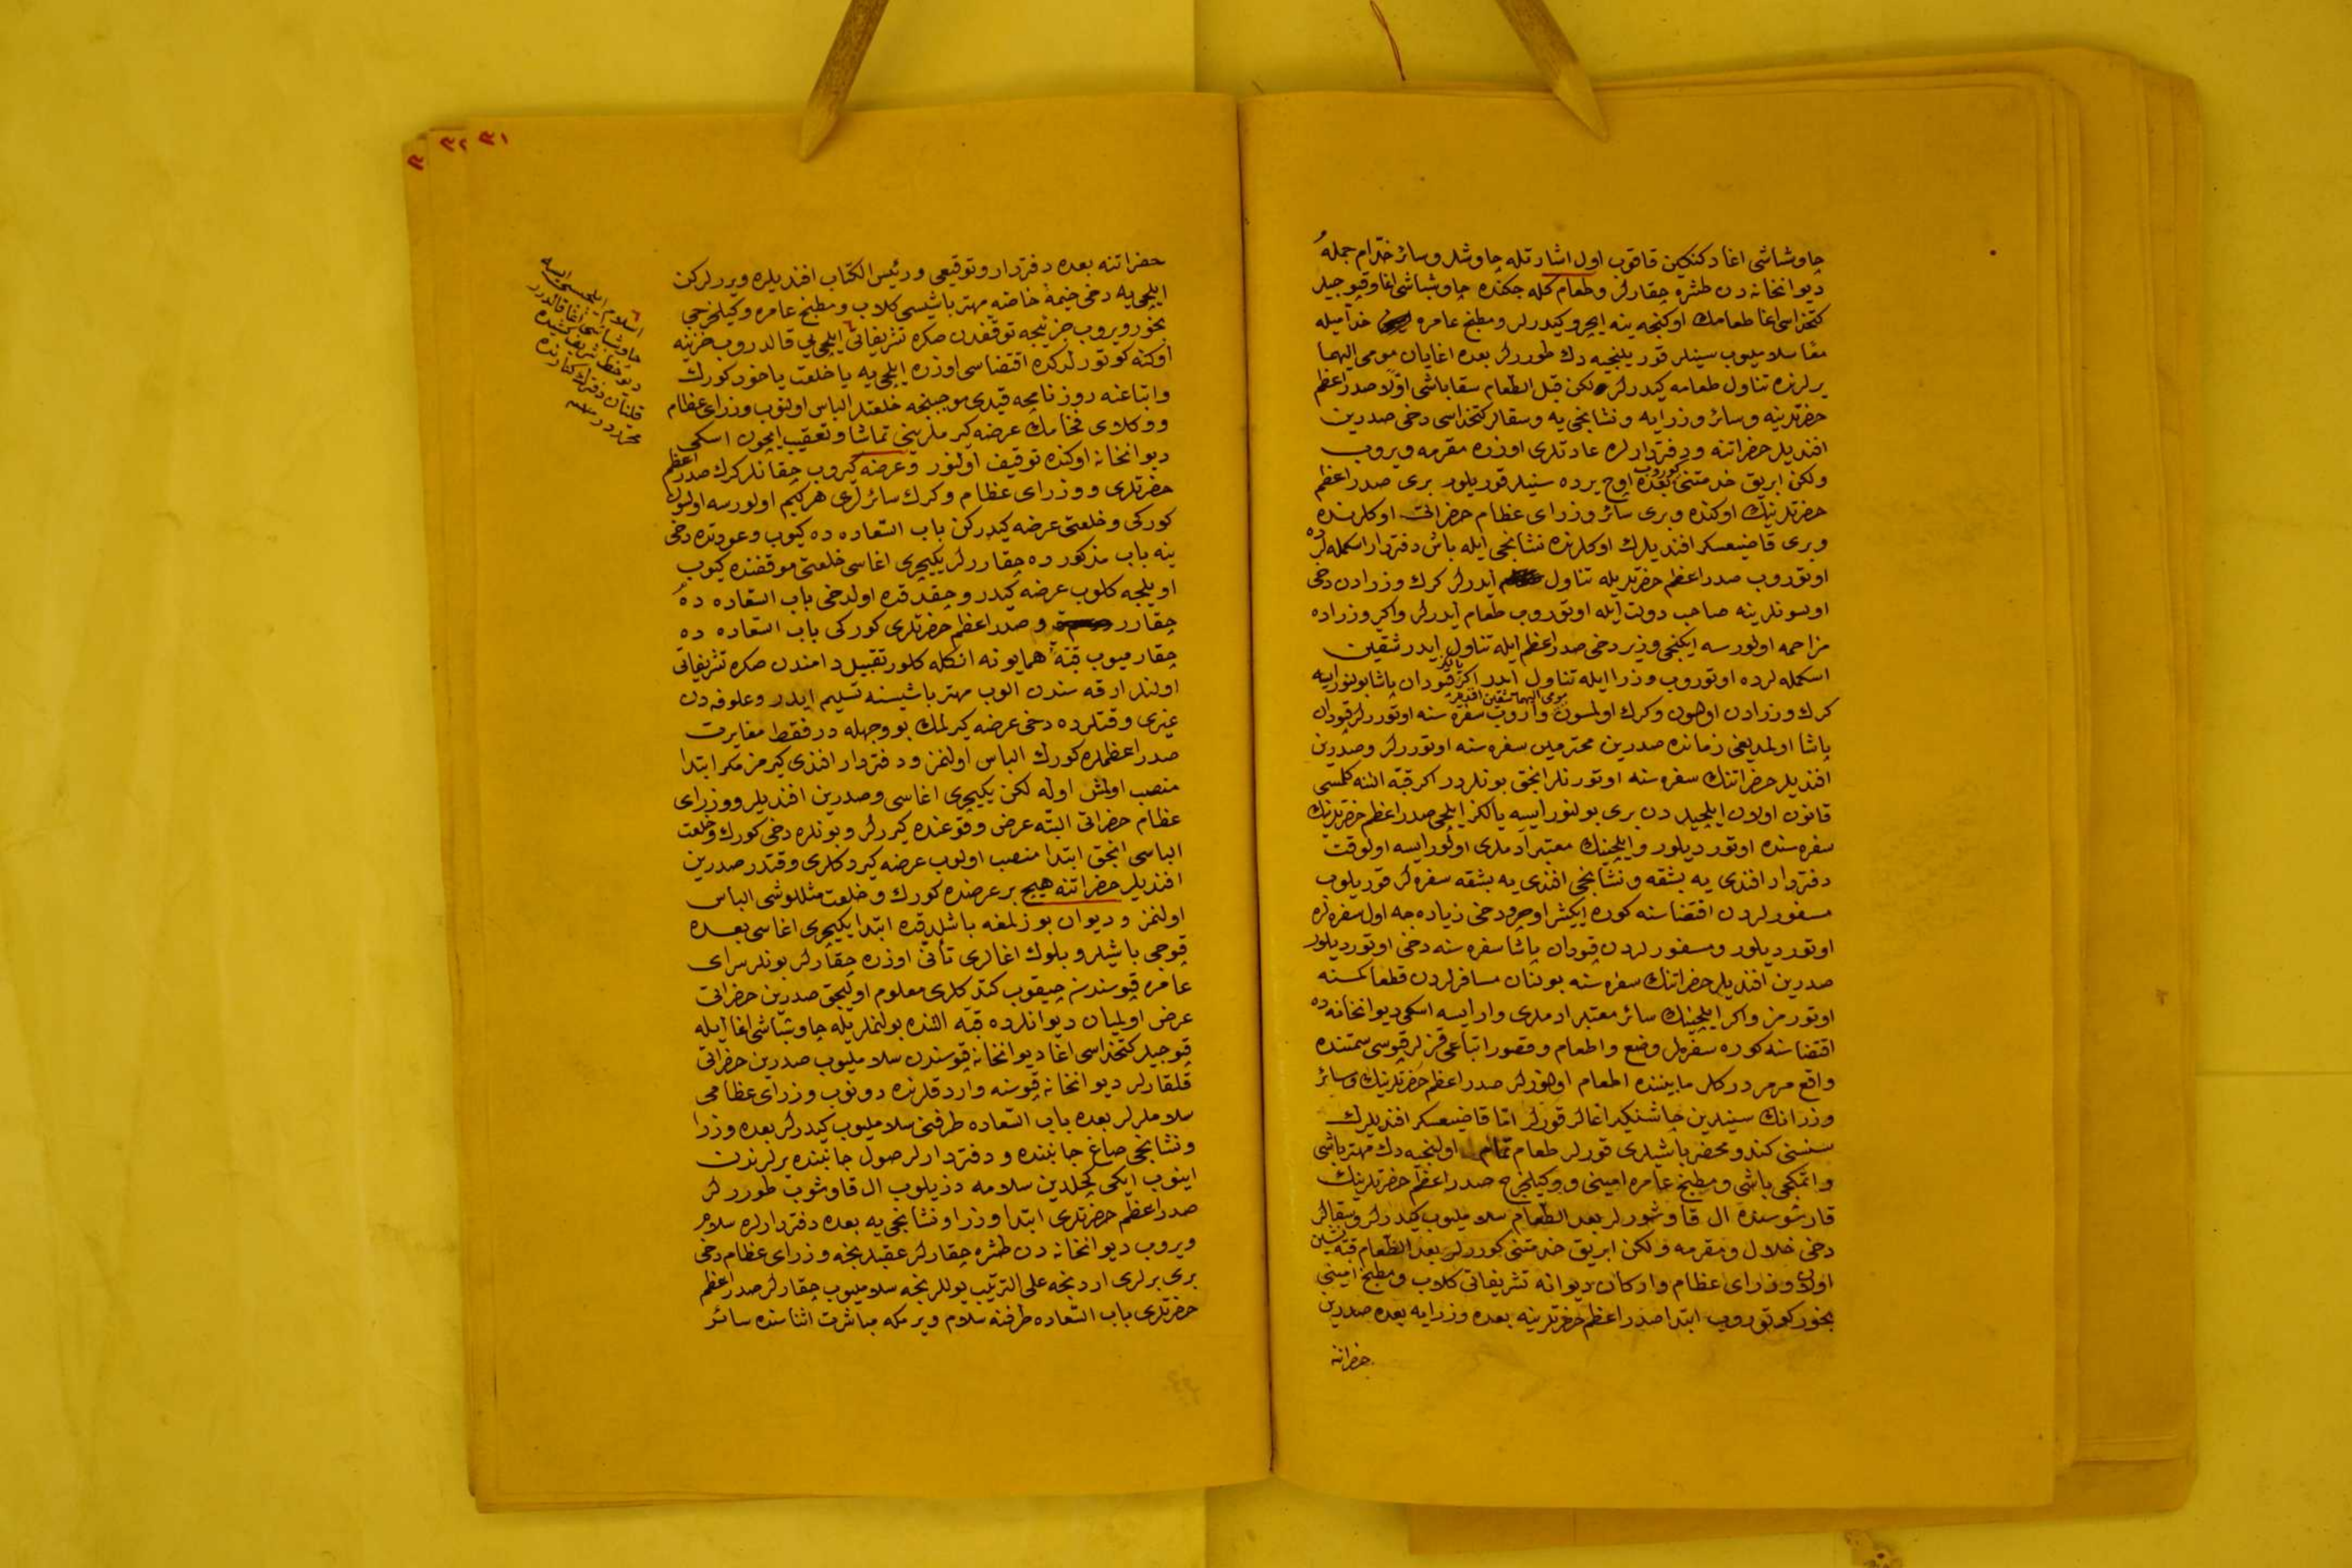 چاوشباشی اغا دكنكین قاقوب اول اشارتله چاوشلر و سائر خدّام جمله
دیوانخانه دن طشره چقارلر و طعام كله جكنده چاوشباشی اغا و قپوجیلر
كتخداسی اغا طعامك اوكنجه ینه ایچرو كیدرلر و مطبخ عامره خدامیله
معًا سلاملیوب سینیلر قوریلنجیه دك طوررلر بعده اغایان مومی الیهما
یرلرنده تناول طعامه كیدرلر ولكن قبل الطعام سقاباشی اوّلا صدر اعظم
حضرتلرینه و سائر وزرایه و نشانجی یه و سقالر كتخداسی دخی صدرین
افندیلر حضراتنه و دفتردارلره عادتلری اوزره مقرمه ویروب
ولكن ابریق خدمتنی كوروب بعده اوچ یرده سنیلر قوریلور بری صدر اعظم
حضرتلرینك اوكنده و بری سائر وزرای عظام حضراتی اوكلرنده
و بری قاضیعسكر افندیلرك اوكلرنده نشانجی ایله باش دفتردار اسكمله لرده
اوتوروب صدر اعظم حضرتلریله تناول ایدرلر كرك وزرادن دخی
اولسونلر ینه صاحب دولت ایله اوتوروب طعام ایدرلر واكر وزراده
مزاحمه اولورسه ایكنجی وزیر دخی صدر اعظم ایله تناول ایدر شقین
اسكمله لرده اوتوروب وزرا ایله تناول ایدر اكر قپودان پاشا بولنور ایسه
كرك وزرادن اولسون و كرك اولمسون واروب سفره سنه اوتوررلر قپودان
پاشا اولمدیغی زمانده صدرین محترمین سفره سنه اوتوررلر و صدرین
افندیلر حضراتنك سفره سنه اوتورنلر انجق بونلردر اكر قبّه التنه كلمسی
قانون اولان ایلچیلردن بری بولنور ایسه یالكز ایلچی صدر اعظم حضرتلرینك
سفره سنده اوتوردیلور و ایلچینك معتبر آدملری اولور ایسه اولوقت
دفتردار افندی یه بشقه و نشانجی افندی یه بشقه سفره لر قوریلوب
مسفورلردن اقتضاسنه كوره ایكیشر اوچر و دخی زیاده جه اول سفره لره
اوتوردیلور و مسفورلردن قپودان پاشا سفره سنه دخی اوتوردیلور
صدرین افندیلر حضراتنك سفره سنه بونتان مسافرلردن قطعا كمسنه
اوتورمز واكر ایلچینك سائر معتبر ادملری وار ایسه اسكی دیوانخانه ده
اقتضاسنه كوره سفره لر وضع و اطعام و قصور اتباعی قزلر قپوسی سمتنده
واقع مرمر دركلر مابیننده اطعام اولنورلر صدر اعظم حضرتلرینك و سائر
وزرانك سینیلرین چاشنكیر اغالر قورلر امّا قاضیعسكر افندیلرك
سنسنی كندو محضر باشیلری قورلر طعام تمام اولنجیه دك مهتر باشی
و اتمكجی باشی و مطبخ عامره امینی و وكیلخرج صدر اعظم حضرتلرینك
قارشوسنده ال قاوشورلر بعد الطعام سلاملیوب كیدرلر و سقالر
دخی خلال و مقرمه و لكن ابریق خدمتنی كوررلر بعد الطعام قبّه نشین
اولان وزرای عظام و اركان دیوانه تشریفاتی كلاب و مطبخ امینی
بخور كوتوروب ابتدا صدر اعظم حضرتلرینه بعده وزرایه بعده صدرین
حضراتنه
حضراتنه بعده دفتردار و توقیعی و رئیس الكتّاب افندیلره ویررلركن
ایلچی یه دخی خیمهٔ خاصّه مهتر باشیسی كلاب و مطبخ عامره وكیلخرجی
بخور ویروب جزئیجه توقفدن صكره تشریفاتی ایلچی یی قالدروب خزینه
اوكنه كوتوررلركده اقتضاسی اوزره ایلچی یه یا خلعت یاخود كورك
و اتباعنه روزنامجه قیدی موجبنجه خلعتلر الباس اولنوب وزرای عظام
و وكلای فخامك عرضه كیرملرینی تماشا و تعقیب ایچون اسكی
دیوانخانه اوكنده توقیف اولنور و عرضه كیروب چقانلر كرك صدر اعظم
حضرتلری و وزرای عظام و كرك سائرلری هر كیم اولورسه اولسون
كوركی و خلعتی عرضه كیدركن باب السّعاده ده كیوب و عودتده دخی
ینه باب مذكورده چقاررلر یكیچری اغاسی خلعتی موقفنده كیوب
اویلجه كلوب عرضه كیدر و چقدقده اولدخی باب السّعاده ده
چقارر و صدر اعظم حضرتلری كوركی باب السّعاده ده
چقارمیوب قبّهٔ همایونه انكله كلور تقبیل دامندن صكره تشریفاتی
اولنلر ارقه سندن الوب مهتر باشیسنه تسلیم ایدر و علوفه دن
غیری وقتلرده دخی عرضه كیرلمك بو وجهله در فقط مغایرت
صدر اعظملره كورك الباس اولنمز و دفتردار افندی كیرمز مكر ابتدا
منصب اولمش اوله لكن یكیچری اغاسی و صدرین افندیلر و وزرای
عظام حضراتی البتّه عرض وقوعنده كیررلر و بونلره دخی كورك و خلعت
الباسی انجق ابتدا منصب اولوب عرضه كیردكلری وقتدر صدرین
افندیلر حضراتنه هیچ بر عرضنده كورك و خلعت مثللو شی الباس
اولنمز و دیوان بوزلمغه باشلدقده ابتدا یكیچری اغاسی بعده
قپوجی باشیلر و بلوك اغالری تأنی اوزره چقارلر بونلر سرای
عامره قپوسندن چیقوب كتدكلری معلوم اولیجق صدرین حضراتی
عرض اولمیان دیوانلرده قبّه التنده بولنملریله چاوشباشی اغا ایله
قپوجیلر كتخداسی اغا دیوانخانه قپوسندن سلاملیوب صدرین حضراتی
قلقارلر دیوانخانه قپوسنه واردقلرنده دونوب وزرای عظامی
سلاملرلر بعده باب السّعاده طرفنی سلاملیوب كیدرلر بعده وزرا
و نشانجی صاغ جانبنده و دفتردارلر صول جانبنده یرلرندن
اینوب ایكی كچلدین سلامه دزیلوب ال قاوشوب طوررلر
صدر اعظم حضرتلری ابتدا وزرا و نشانجی یه بعده دفتردارلره سلام
ویروب دیوانخانه دن طشره چقارلر عقبلرنجه وزرای عظام دخی
بری برلری اردنجه علی الترتیب یوللرنجه سلاملیوب چقارلر صدر اعظم
حضرتلری باب السّعاده طرفنه سلام ویرمكه مباشرت اثناسنده سائر
اسلام ایلچیسی ایسه
چاوشباشی اغا قالدرر